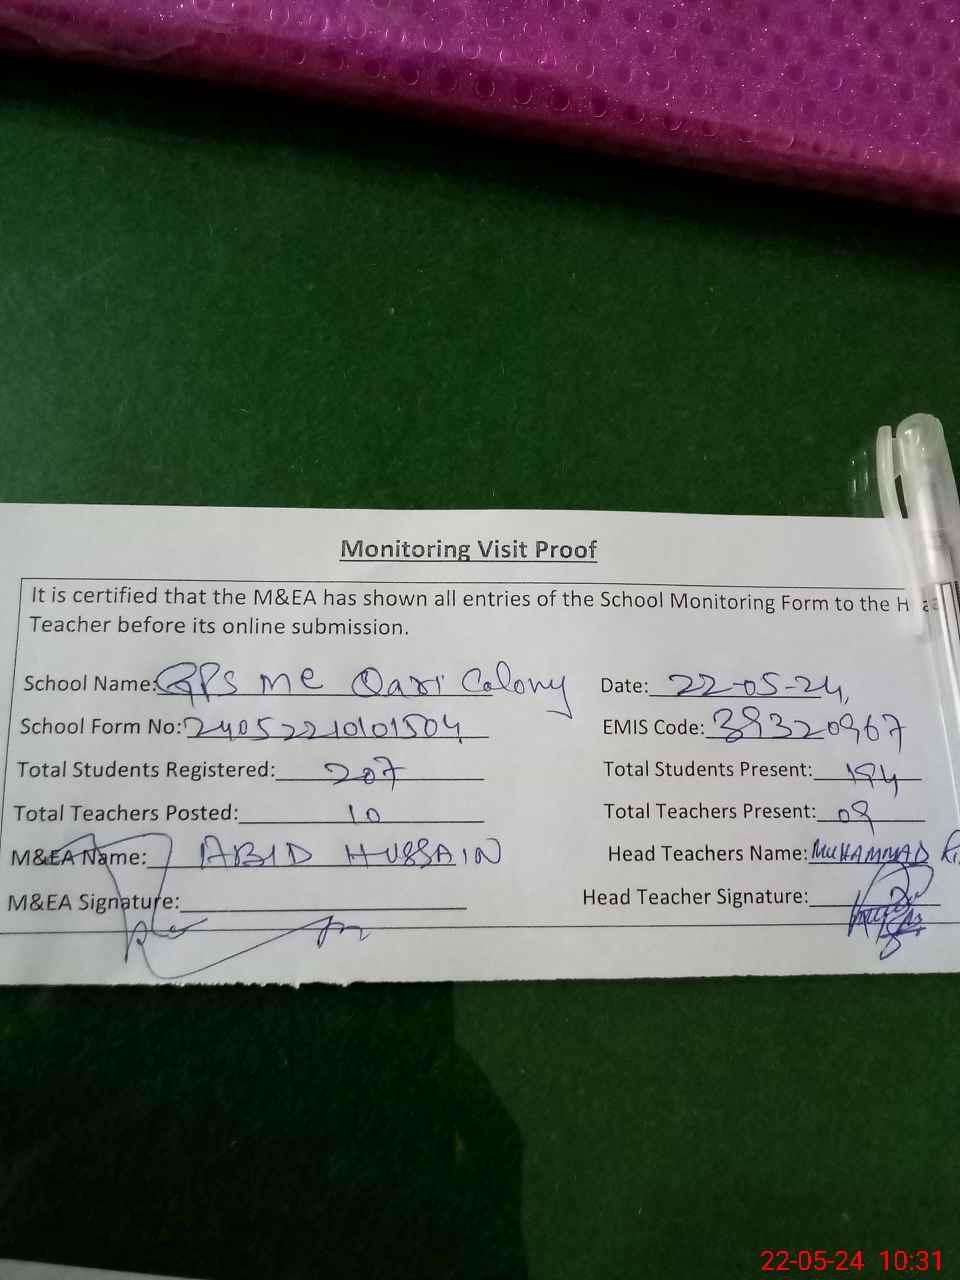 Monitoring Visit Proof
It is certified that the M&EA has shown all entries of the School Monitoring Form to the
Teacher before its online submission.
School Name: GPS MC Qari Colony Date: 22-05-24,
School Form No: 24052210101504 EMIS Code: 39320967
Total Students Registered: 207 Total Students Present: 194
Total Teachers Posted: 10 Total Teachers Present: 09
M&EA Name: ABID HUSSAIN Head Teachers Name: MUHAMMAD
M&EA Signature: Head Teacher Signature:
22-05-24 10:31